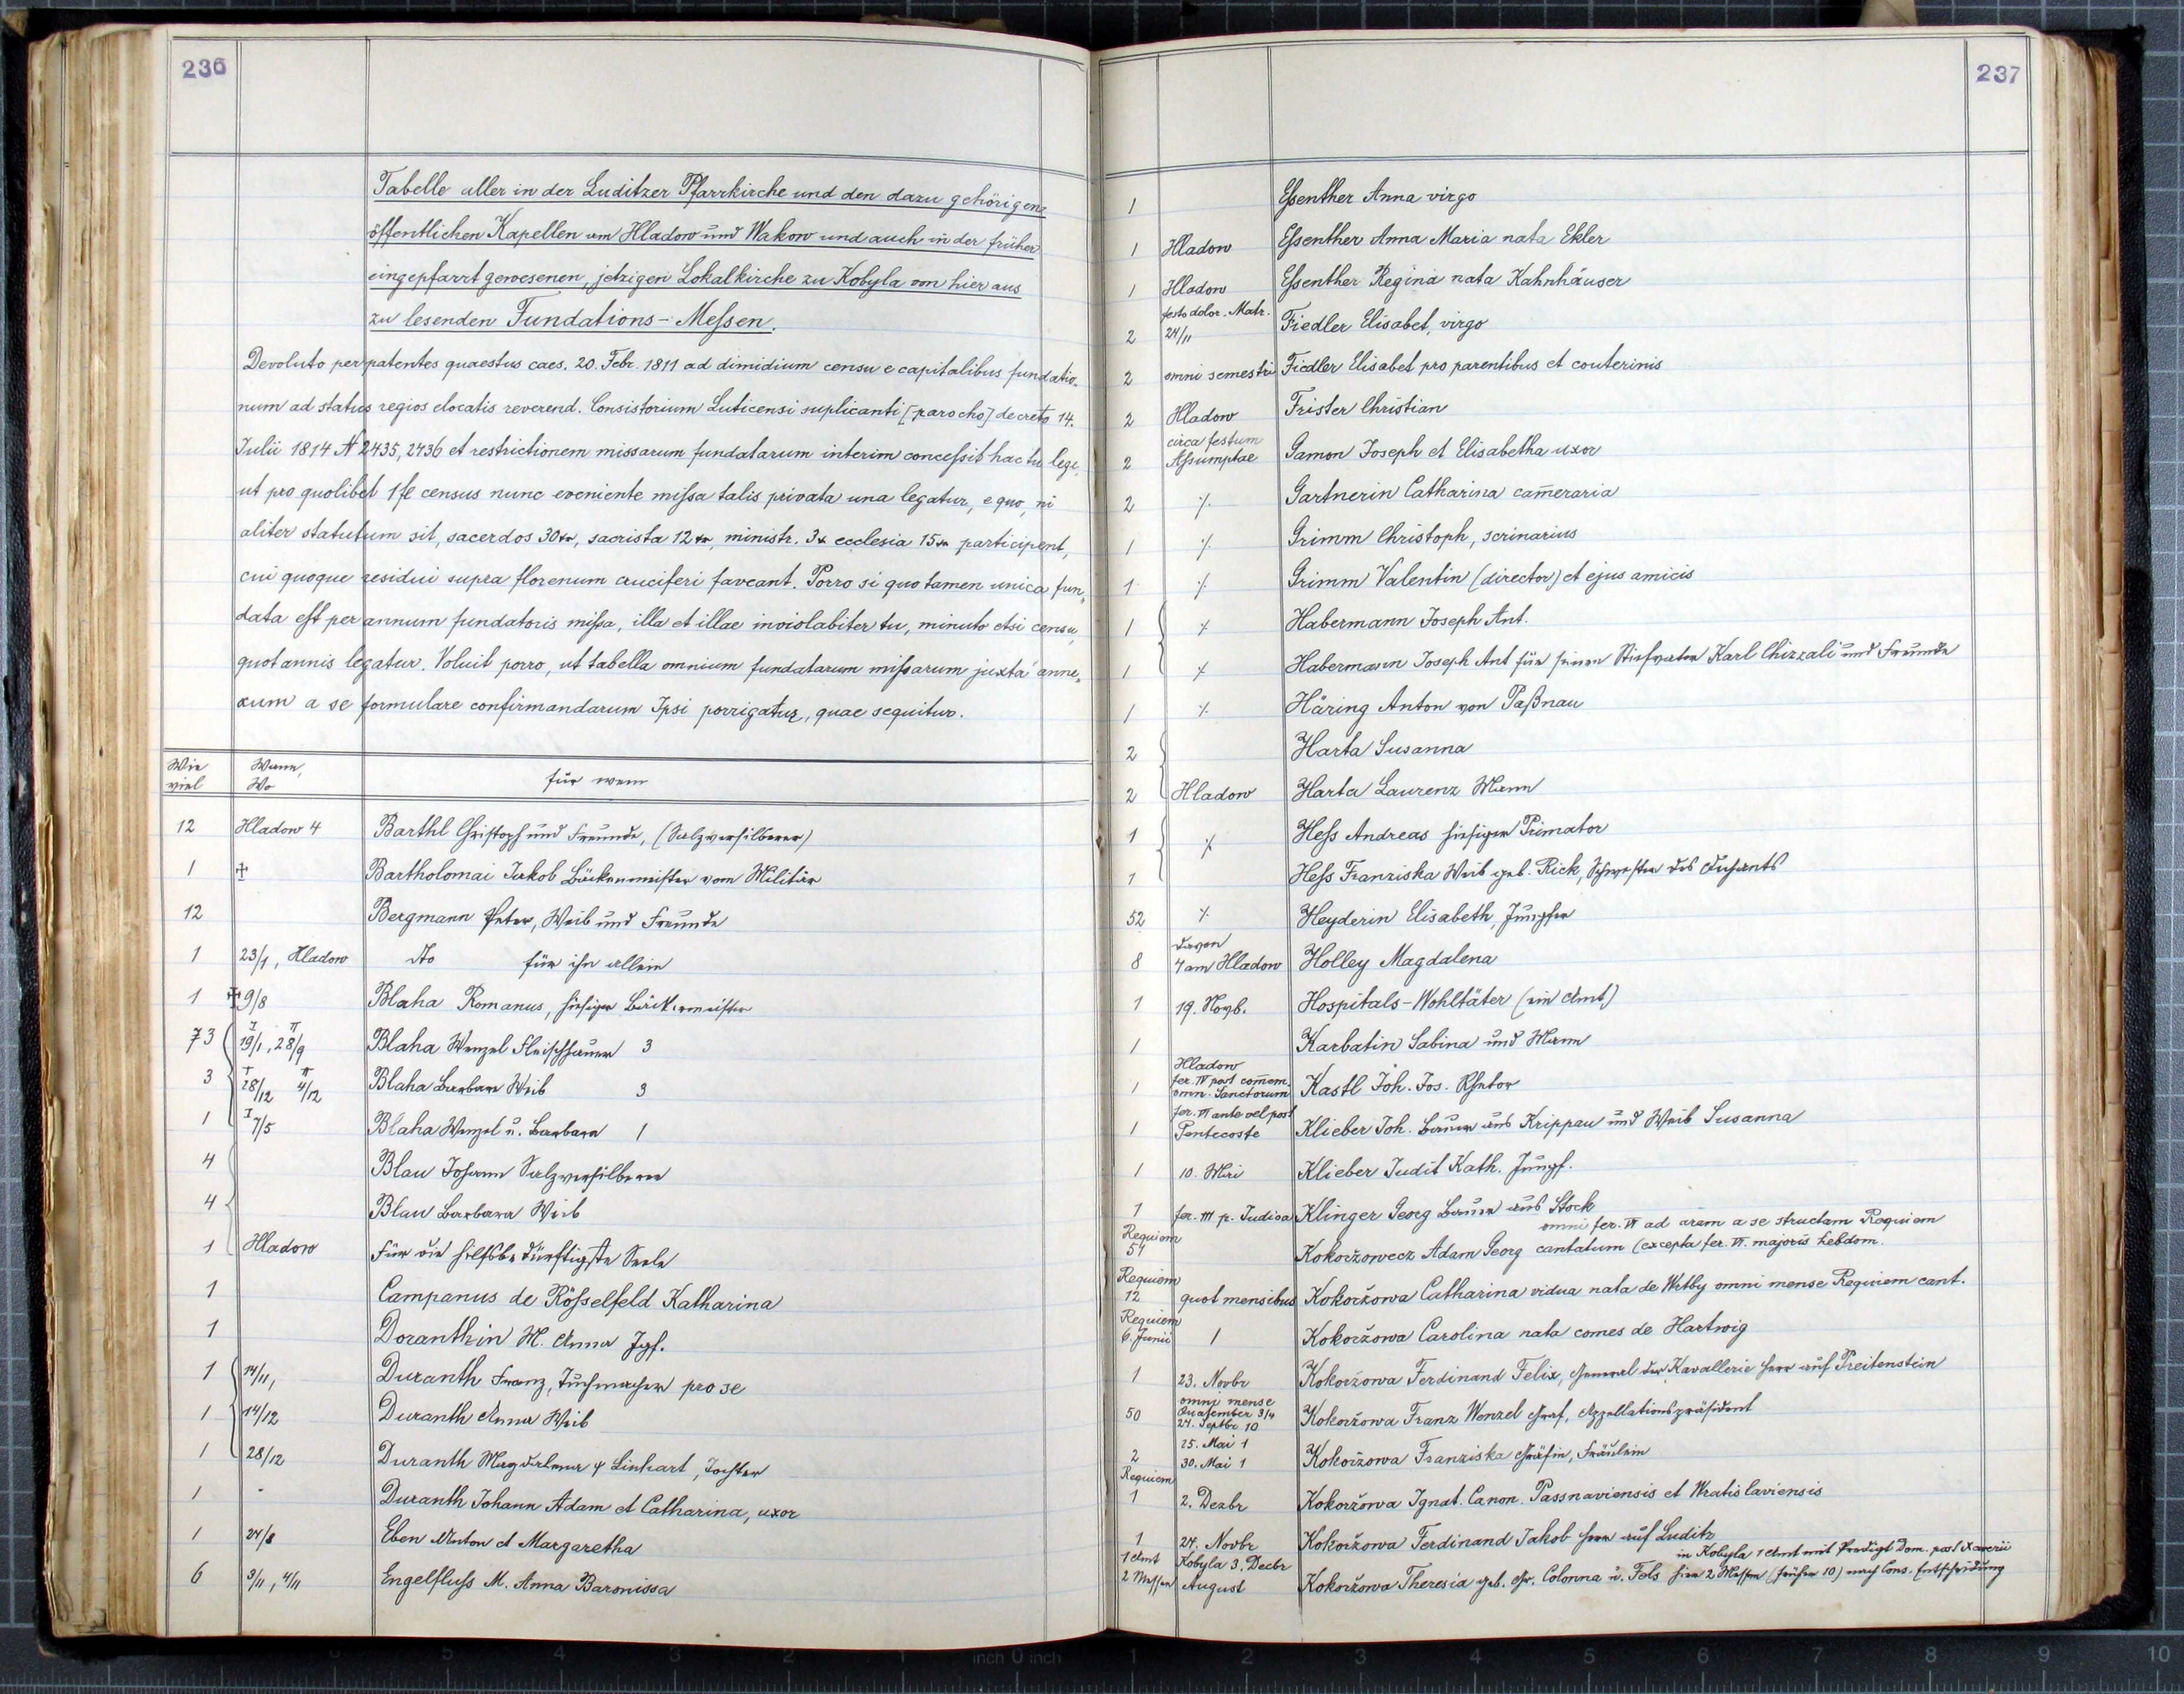 236
Tabelle aller in der Luditzer Pfarrkirche und den dazu gehörigen
öffentlichen Kapellen am Hladow und Wakow und auch in der früher
eingepfarrt gewesenen, jetzigen Lokalkirche zu Kobyla von hier aus
zu lesenden Fundations-Meßen.
Devoluto per patentes quaestus caes. 20. Febr. 1811 ad dimidium censu e capitalibus fundatio-
num ad status regios elocatis reverend. Consistorium Luticensi suplicanti [parocho] decreto 14.
Julii 1814 N 2435, 2436 et restrictionem missarum fundatarum interim conceßit hac tu lege,
ut pro quolibet 1 fl census nunc eveniente mißa talis privata una legatur, e quo, ni
aliter statutum sit, sacerdos 30 xr, sacrista 12 xr, ministr. 3x ecclesia 15 xr participent,
cui quoque residui supra florenum cruciferi faveant. Porro si quo tamen unica fun„
data est per annum fundatoris mißa, illa et illae inviolabiter tu, minuto etsi censu,
quotannis legatur. Voluit porro, ut tabella omnium fundatarum mißarum juxta anne„
xum a se formulare confirmandarum Ipsi porrigatur, quae sequitur.
Wie viel Wann, Wo für wem
12 Hladow 4 Barthl Christoph und Freunde, (Salzversilberer)
1 ‡ Bartholomai Jakob Bäckenmeister vom Militär
12 Bergmann Peter, Weib und Freunde
1 23/1, Hladow dto für ihn allein
1 ‡ 9/8 Blaha Romanus, hiesiger Bäckermeister
73 I 19/1, II 28/9 Blaha Wenzel Fleischhauer 3
3 I 28/12 II 4/12 Blaha Barbara Weib 3
1 I 7/5 Blaha Wenzel u. Barbara 1
4 Blau Johann Salzversilberer
4 Blau Barbara Weib
1 Hladow Für die hilfsbedürftigste Seele
1 Campanus de Rößelfeld Katharina
1 Doranthin M. Anna Jgf.
1 14/11, Duranth Franz, Tuchmacher pro se
1 14/12 Duranth Anna Weib
1 28/12 Duranth Magdalena Linhart, Tochter
1 - Duranth Johann Adam et Catharina, uxor
1 24/8 Eben Anton et Margaretha
6 3/11, 4/11 Engelfluß M. Anna Baronissa
237
1 Eßenther Anna virgo
1 Hladow Eßenther Anna Maria nata Ekler
1 Hladow Eßenther Regina nata Kahnhäuser
festo dolor. Matr.
2 24/11 Fiedler Elisabet, virgo
2 omni semestri Fiedler Elisabet pro parentibus et couterinis
2 Hladow Frister Christian
circa festum
2 Aßumptae Gamon Joseph et Elisabetha uxor
2 ⁒ Gartnerin Catharina cam̄eraria
1 ⁒ Grimm Christoph, scrinarius
1 ⁒ Grimm Valentin (director) et ejus amicis
1 ⁒ Habermann Joseph Ant.
1 ⁒ Habermann Joseph Ant für seinen Stiefvater Karl Chizzali und Freunde
1 ⁒ Häring Anton von Paßnau
2 Harta Susanna
2 Hladow Harta Laurenz Mann
1 ⁒ Heß Andreas hiesiger Primator
1 Heß Franziska Weib geb. Rick, Schwester des Dechants
52 ⁒ Heyderin Elisabeth, Jungfer
davon
8 4 am Hladow Holley Magdalena
1 19. Novb. Hospitals-Wohltäter (ein Amt)
1 Karbatin Sabina und Mann
Hladow
fer. IV post com̄em.
1 omn. Sanctorum Kastl Joh. Jos. Rhetor
fer. VI ante vel post
1 Pentecoste Klieber Joh. Bauer aus Krippau und Weib Susanna
1 10. Mai Klieber Judit Kath. Jungf.
1 fer. III p. Judica Klinger Georg Bauer aus Stock
Requiem omni fer. VI ad aram a se structam Requiem
51 Kokoržowecz Adam Georg cantatum (excepta fer. VI. majoris hebdom.
Requiem
12 quot mensibus Kokoržowa Catharina vidua nata de Witby omni mense Requiem cant.
Requiem
6. Junii 1 Kokoržowa Carolina nata comes de Hartwig
1 23. Novbr Kokoržowa Ferdinand Felix, General der Kavallerie Herr auf Preitenstein
omni mense
Quatember 3/4
50 24. Septbr 10 Kokoržowa Franz Wenzel Graf, Appellationspräsident
25. Mai 1
2 30. Mai 1 Kokoržowa Franziska Gräfin, Fräulein
Requiem
1 2. Dezbr Kokoržowa Ignat. Canon. Passnaviensis et Wratislaviensis
1 24. Novbr Kokoržowa Ferdinand Jakob Herr auf Luditz
1 Amt Kobyla 3. Decbr in Kobyla 1 Amt mit Predigt Dom. post Xaverii
2 Messen August Kokoržowa Theresia geb. Gr. Colonna u. Fels hier 2 Messen (früher 10) nach Cons. Entscheidung
5 4 3 2 1 inch 0 inch 1 2 3 4 5 6 7 8 9 10